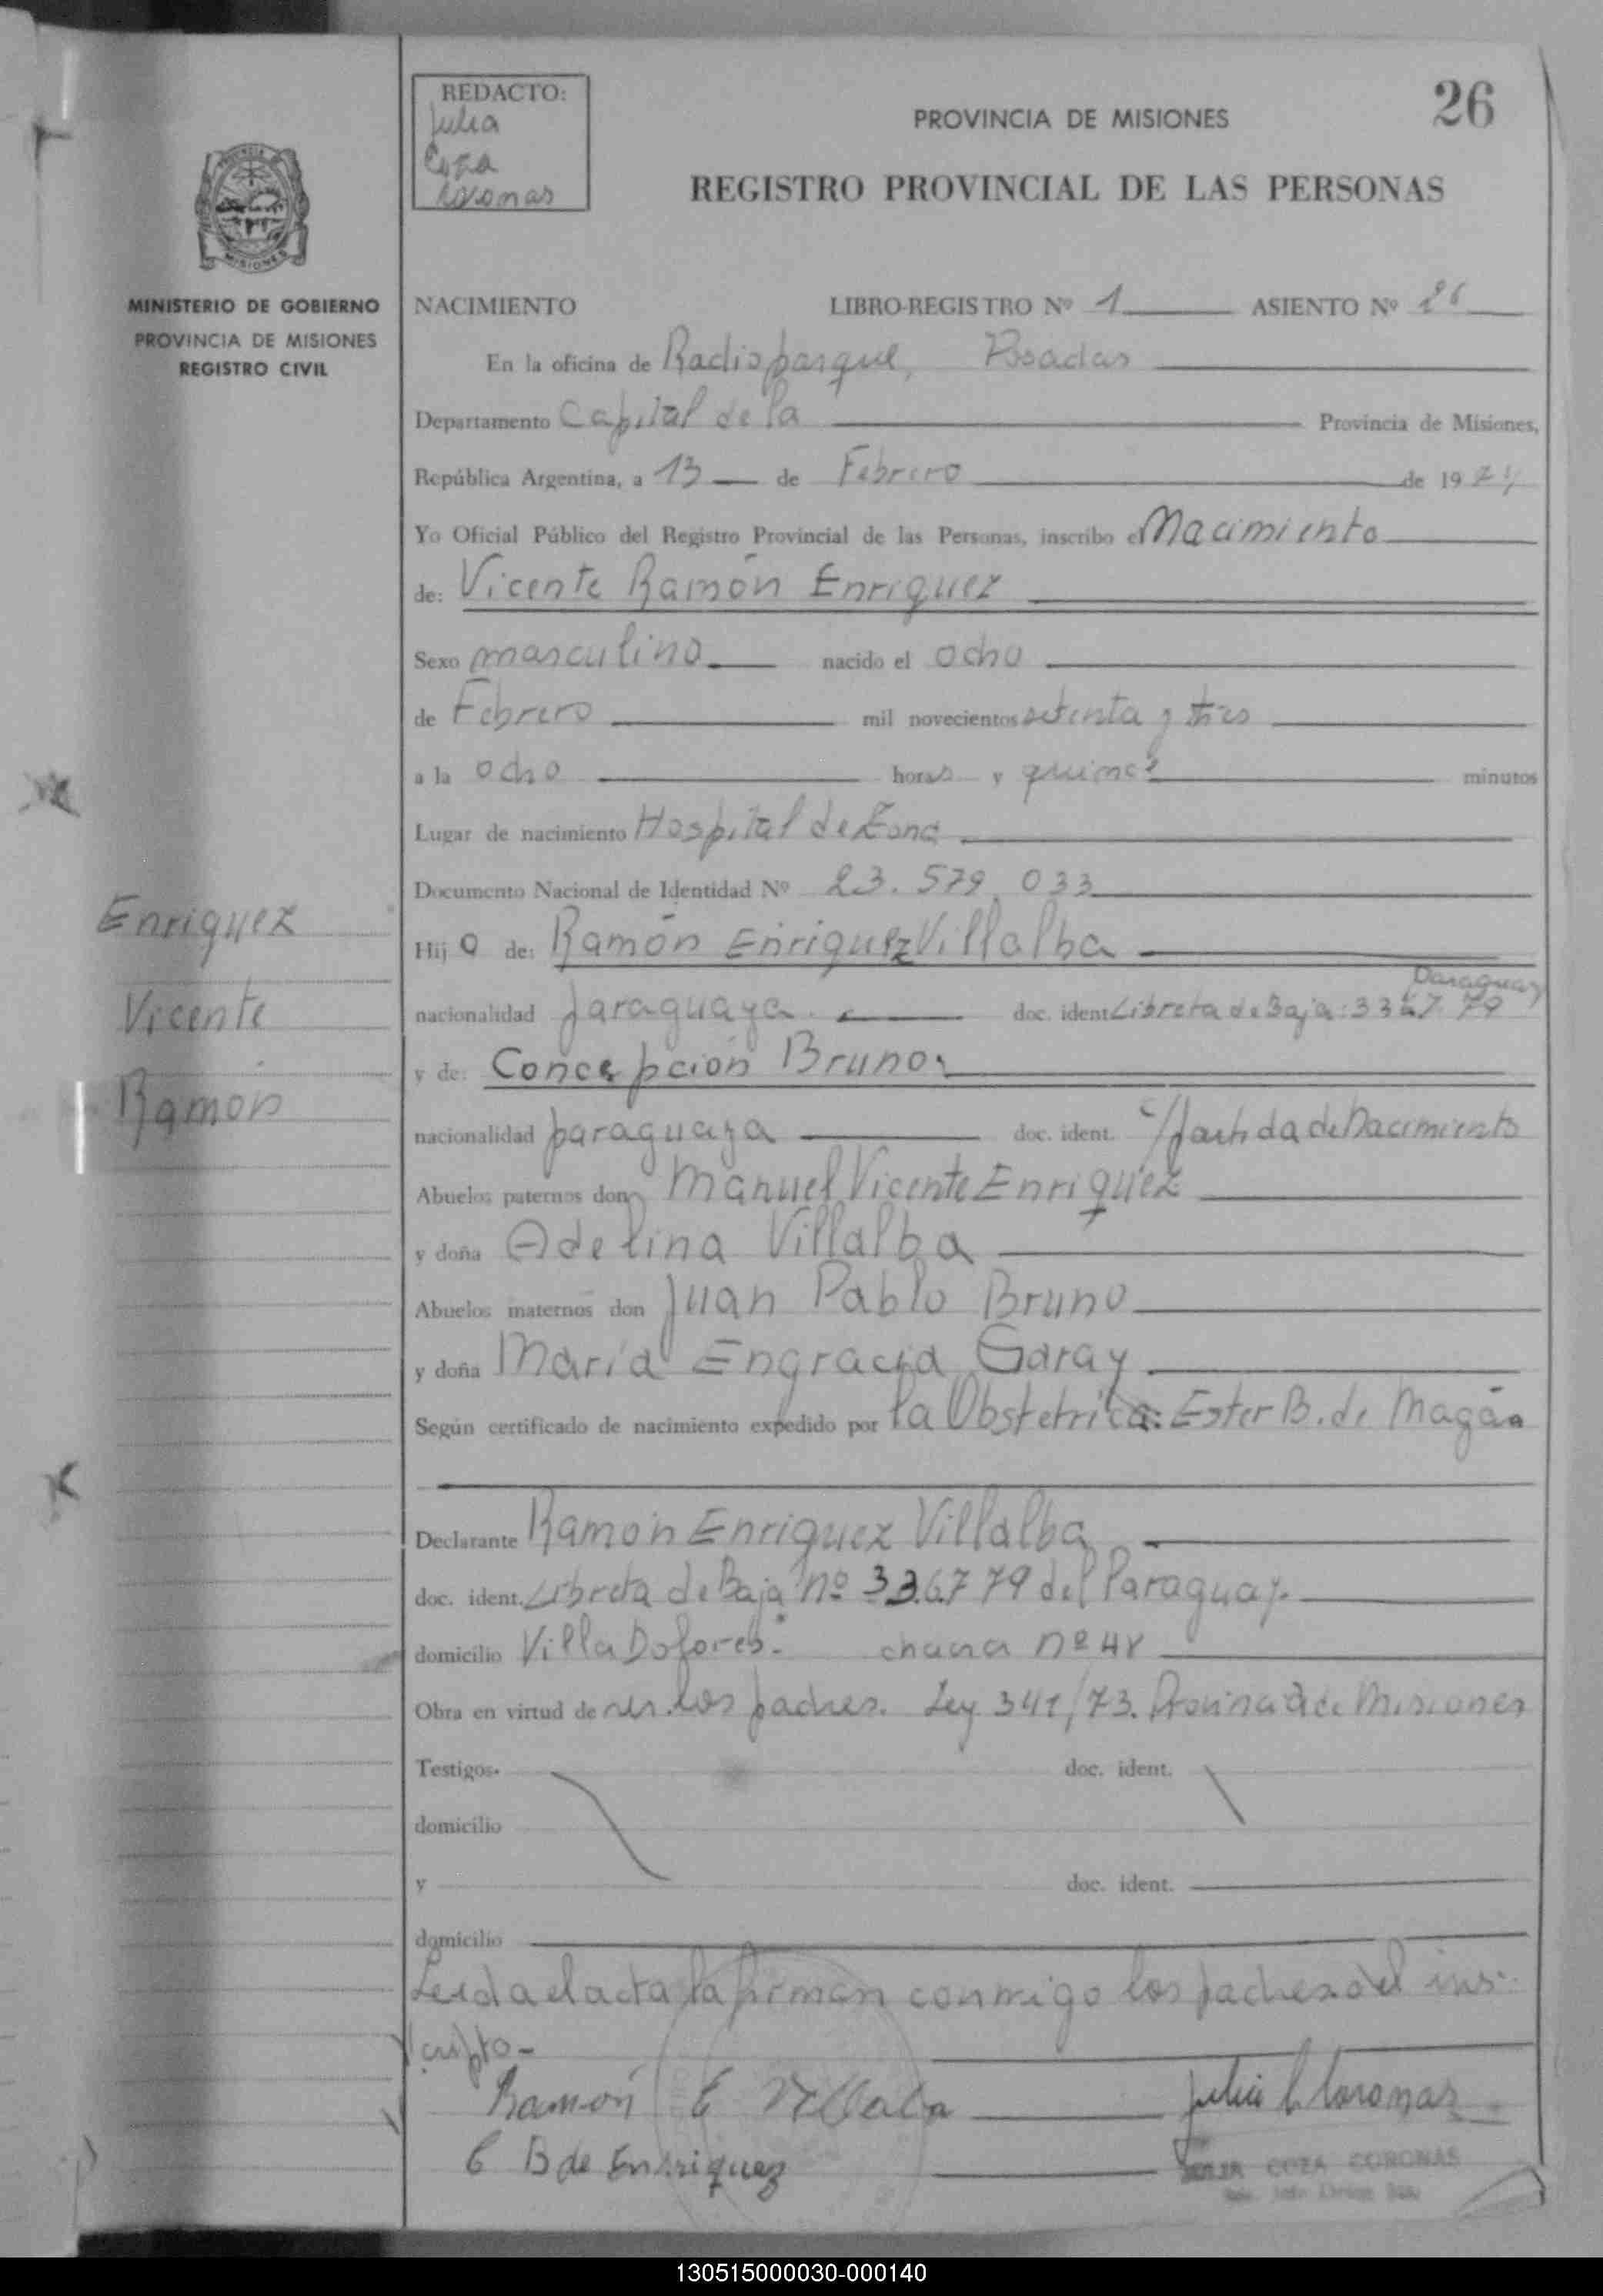 26
REDACTO:
Julia
Coza
Coronas
PROVINCIA DE MISIONES
REGISTRO PROVINCIAL DE LAS PERSONAS
MISIONES
MINISTERIO DE GOBIERNO
PROVINCIA DE MISIONES
REGISTRO CIVIL
NACIMIENTO LIBRO-REGISTRO Nº 1 ASIENTO Nº 26
En la oficina de Radioparque, Posadas
Departamento Capital de la Provincia de Misiones,
República Argentina, a 13 de Febrero de 1974
Yo Oficial Público del Registro Provincial de las Personas, inscribo el Nacimiento
de: Vicente Ramón Enriquez
Sexo masculino nacido el ocho
de Febrero mil novecientos setenta y tres
a la ocho horas y quince minutos
Lugar de nacimiento Hospital de Zona
Documento Nacional de Identidad Nº 23.579.033
Enriquez
Vicente
Ramón
Hij o de: Ramón Enriquez Villalba
nacionalidad paraguaya. doc. ident. Libreta de Baja: 336779 Paraguay
y de: Concepción Bruno.
nacionalidad paraguaya doc. ident. c/partida de nacimiento
Abuelos paternos don Manuel Vicente Enriquez
y doña Adelina Villalba
Abuelos maternos don Juan Pablo Bruno
y doña María Engracia Garay
Según certificado de nacimiento expedido por la Obstetrica: Ester B. de Magán
Declarante Ramón Enriquez Villalba
doc. ident. Libreta de Baja nº 336779 del Paraguay.
domicilio Villa Dolores. chacra nº 48
Obra en virtud de ser los padres. Ley 341/73. Provincia de Misiones
Testigos doc. ident.
domicilio
y doc. ident.
domicilio
Leida el acta la firman conmigo los padres del ins-
cripto-
Ramón E Villalba Julia C. Coronas
C B de Enrriquez
JULIA COZA CORONAS
130515000030-000140